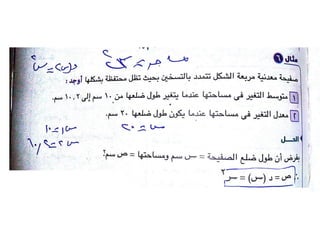 مثال ٦
صفيحة معدنية مربعة الشكل تتمدد بالتسخين بحيث تظل محتفظة بشكلها أوجد :
١ متوسط التغير فى مساحتها عندما يتغير طول ضلعها من ١٠ سم إلى ١٠,٢ سم.
٢ معدل التغير فى مساحتها عندما يكون طول ضلعها ٢٠ سم.
س = ٢٠
الحــل
بفرض أن طول ضلع الصفيحة = س سم ومساحتها = ص سم²
∴ ص = د (س) = س²